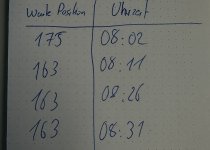 Werte Position Uhrzeit
175 08:02
163 08:11
163 08:26
163 08:31